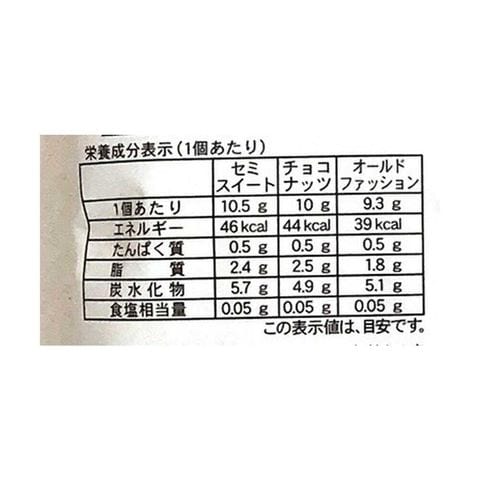 栄養成分表示(1個あたり)
セミスイート チョコナッツ オールドファッション
1個あたり 10.5 g 10 g 9.3 g
エネルギー 46 kcal 44 kcal 39 kcal
たんぱく質 0.5 g 0.5 g 0.5 g
脂質 2.4 g 2.5 g 1.8 g
炭水化物 5.7 g 4.9 g 5.1 g
食塩相当量 0.05 g 0.05 g 0.05 g
この表示値は、目安です。